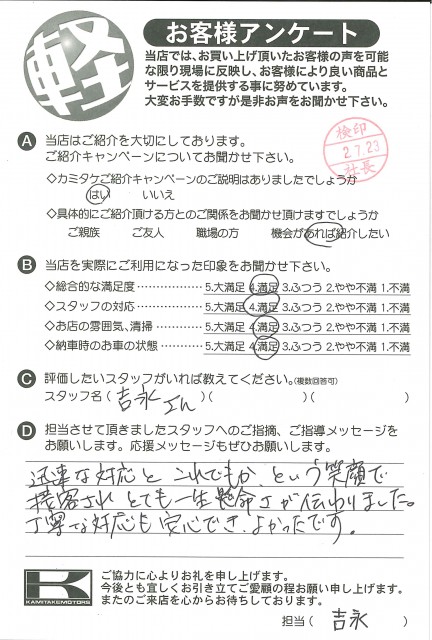 軽
お客様アンケート
当店では、お買い上げ頂いたお客様の声を可能
な限り現場に反映し、お客様により良い商品と
サービスを提供する事に努めています。
大変お手数ですが是非お声をお聞かせ下さい。
検印
2.7.23
社長
A 当店はご紹介を大切にしております。
ご紹介キャンペーンについてお聞かせ下さい。
◇カミタケご紹介キャンペーンのご説明はありましたでしょうか
はい いいえ
◇具体的にご紹介頂ける方とのご関係をお聞かせ頂けますでしょうか
ご親族 ご友人 職場の方 機会があれば紹介したい
B 当店を実際にご利用になった印象をお聞かせ下さい。
◇総合的な満足度 ……………… 5.大満足 4.満足 3.ふつう 2.やや不満 1.不満
◇スタッフの対応 ……………… 5.大満足 4.満足 3.ふつう 2.やや不満 1.不満
◇お店の雰囲気、清掃 ………… 5.大満足 4.満足 3.ふつう 2.やや不満 1.不満
◇納車時のお車の状態 ………… 5.大満足 4.満足 3.ふつう 2.やや不満 1.不満
C 評価したいスタッフがいれば教えてください。(複数回答可)
スタッフ名 ( 吉永さん )( )( )
D 担当させて頂きましたスタッフへのご指摘、ご指導メッセージを
お願いします。応援メッセージもぜひお願いします。
迅速な対応と これでもか、という笑顔で
接客され とても一生懸命さが伝わりました。
丁寧な対応も安心でき、よかったです。
K
KAMITAKEMOTORS
ご協力に心よりお礼を申し上げます。
今後とも宜しくお引き立てご愛顧の程お願い申し上げます。
またのご来店を心からお待ちしております。
担当 ( 吉永 )